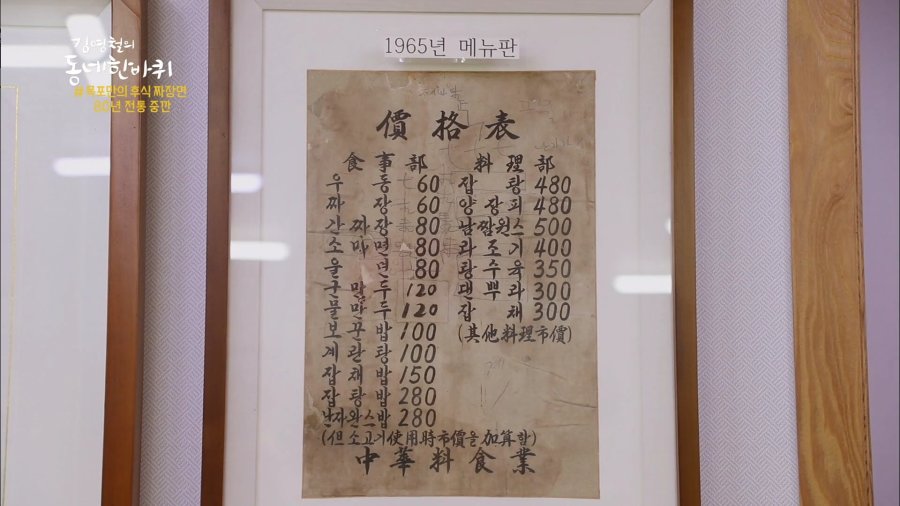 김영철의
동네한바퀴
#목포만의 후식 짜장면
전통 중깐
1965년 메뉴판
價格表
食事部
우동 60
짜장 60
간짜장 80
소마면 80
울면 80
군만두 120
물만두 120
보꾼밥 100
계란탕 100
잡채밥 150
잡탕밥 280
난자완스밥 280
料理部
잡탕 480
양장피 480
500
라조기 400
탕수육 350
댄뿌라 300
잡채 300
(其他料理市價)
(但 소고기使用時市價을加算함)
中華料食業